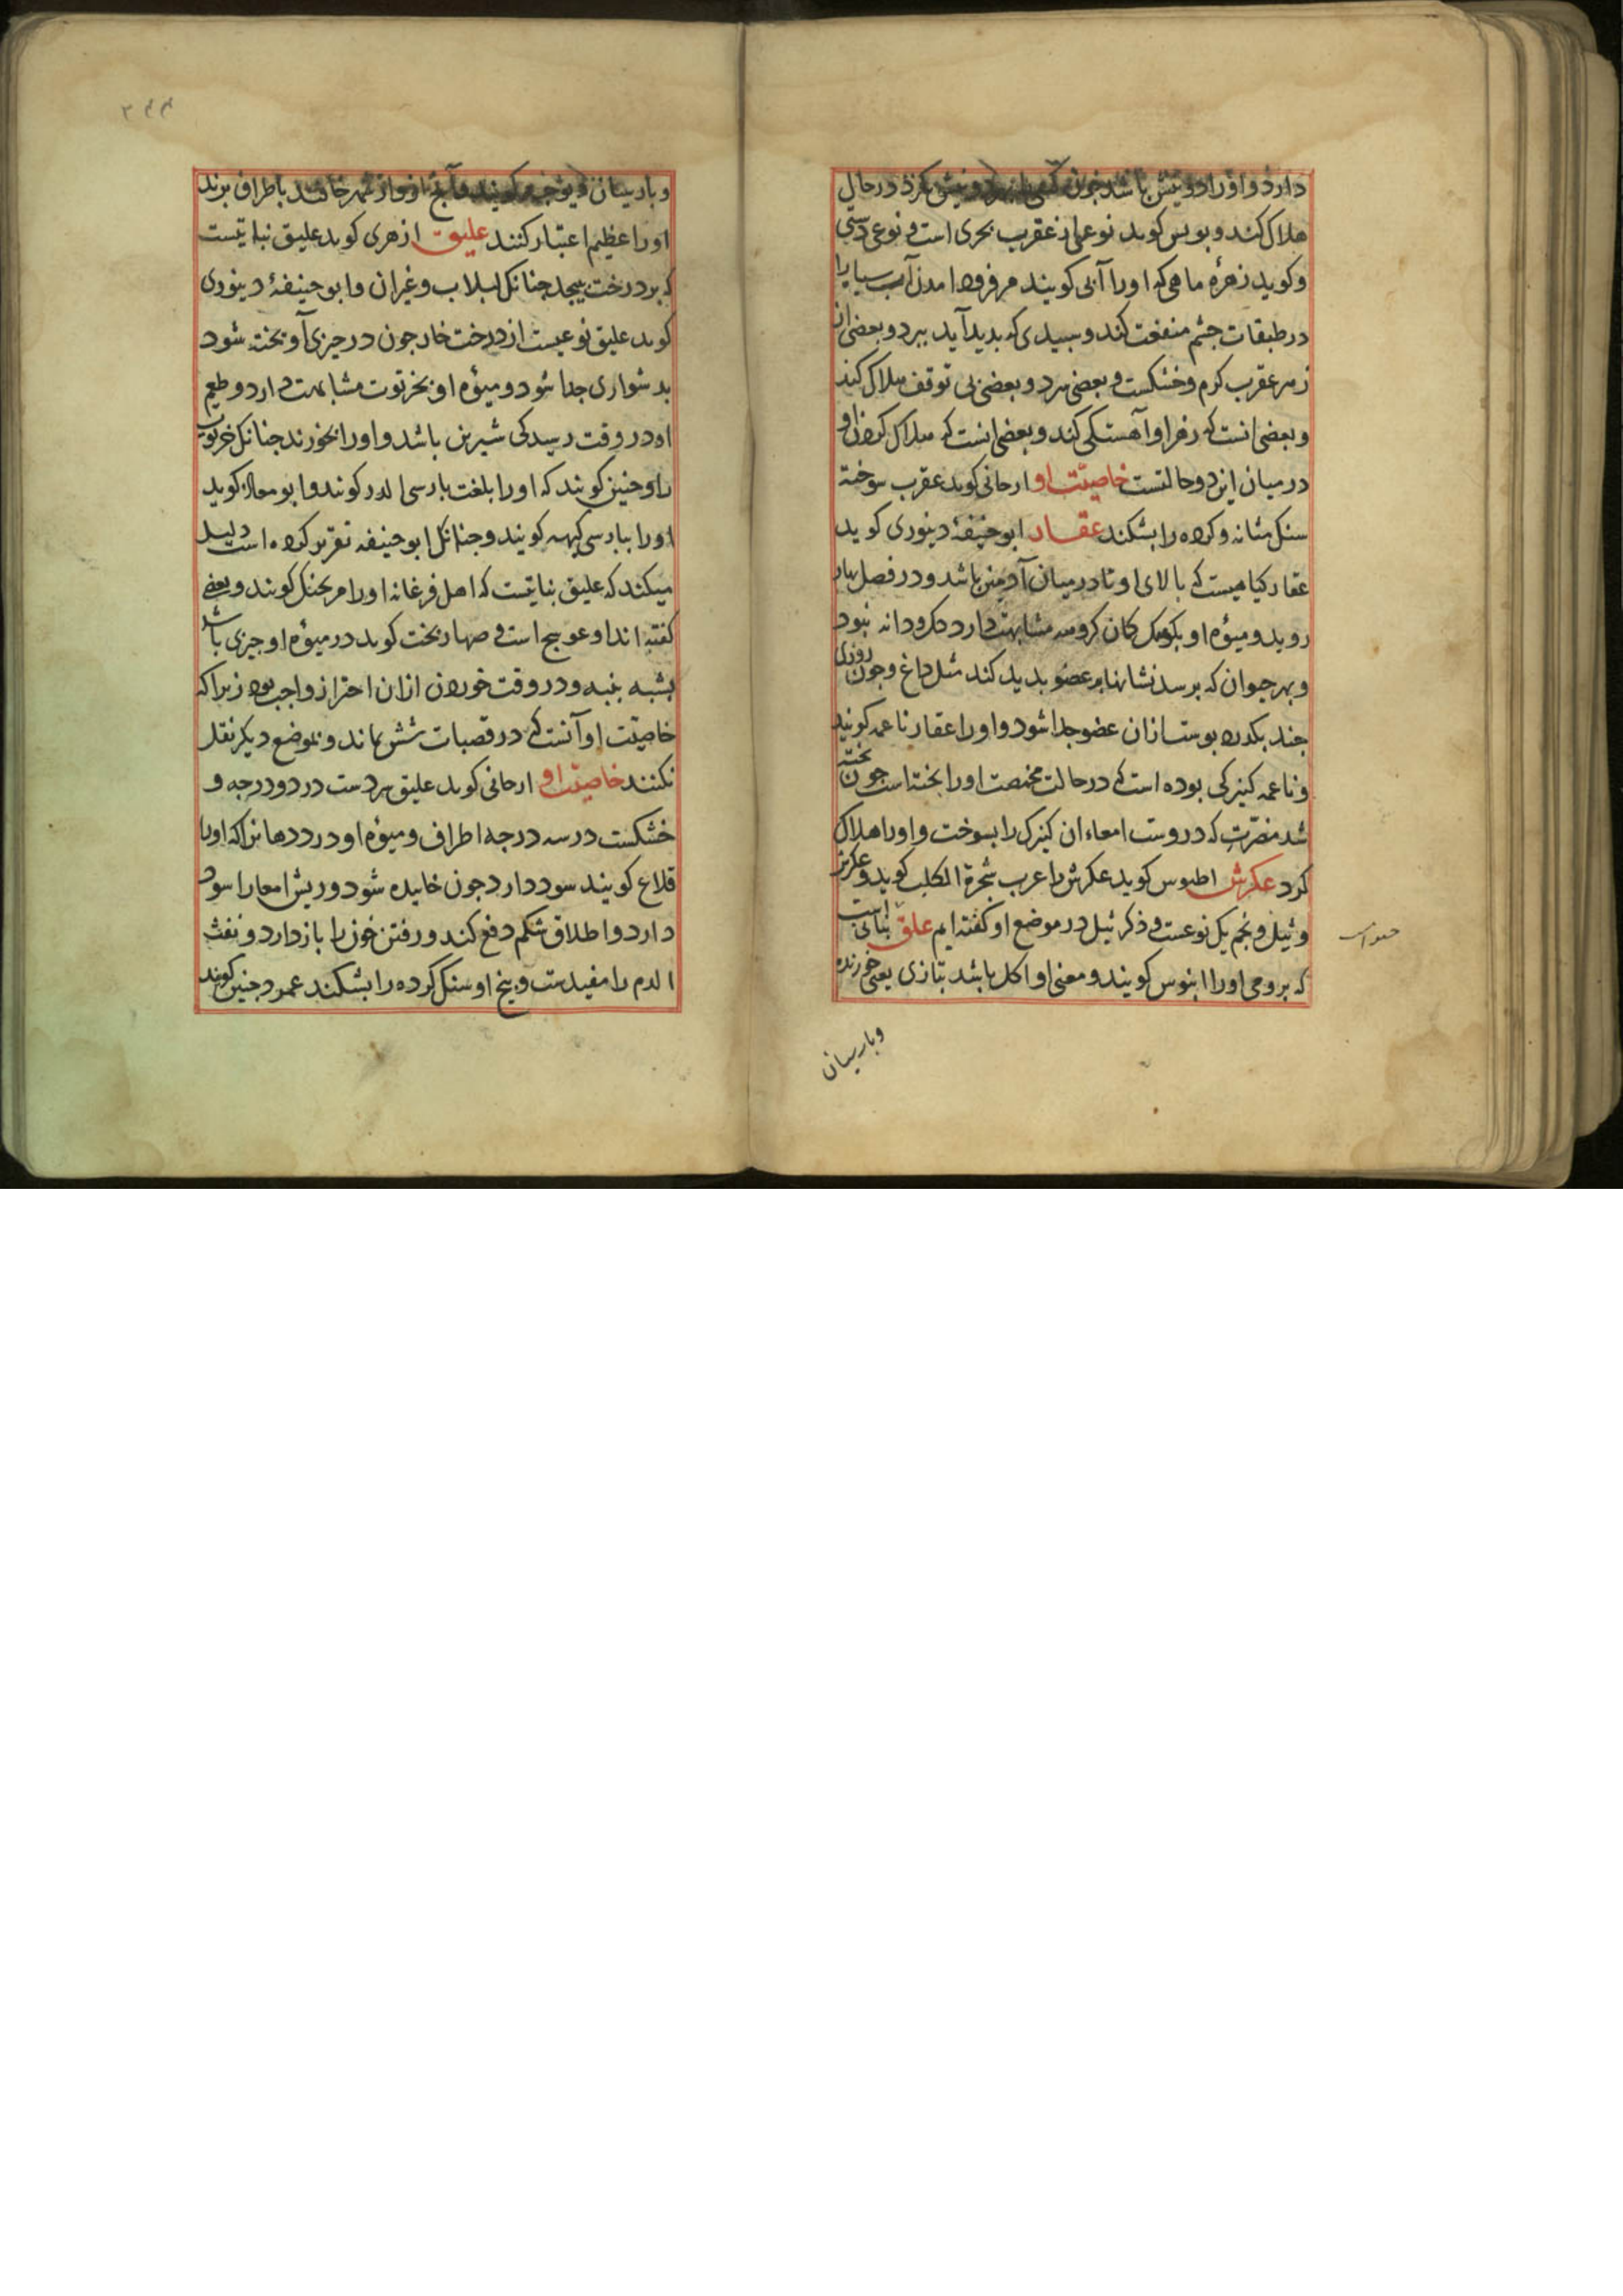 دارد و او را دو نیش باشد چون کسی را بهر دو نیش بگزد در حال
هلاک کند و بولس کوید نوعی از عقرب بحری است و نوعی دشتی
و کوید زهرهٔ ماهی که او را آبی کویند مر فرود امدن آب سیاه را
در طبقات چشم منفعت کند و سبیدی که بدید آید ببرد و بعضی از
زهر عقرب کرم و خشکست و بعضی سرد و بعضی بی توقف هلاک کند
و بعضی انست که زهر او آهستکی کند و بعضی انست که هلاک کردن او
در میان این دو حالتست خاصیّت او ارجانی کوید عقرب سوخته
سنک مثانه و کرده را بشکند عقار ابو حنیفهٔ دینوری کوید
عقار کیاهیست که بالای او تا در میان آدمیین باشد و در فصل بهار
روید و میوهٔ او بکوبک کان کروسه مشابهت دارد که درو دانه نبود
و بهر حیوان که برسد نشانها بر عضو بدید کند مثل داغ و چون روزی
چند بکذرد بوست از ان عضو جدا شود و او را عقار ناعمه کویند
و ناعمه کنیزکی بوده است که در حالت مخمصت او را بختست چون بخته
شد مضرّت که دروست امعاء ان کنیزک را بسوخت و او را هلاک
کرد عکرش اطیوس کوید عکرش را عرب شجرة الکلب کوید و عکرش
و ثیل و نجم یک نوعست و ذکر ثیل در موضع او کفته ایم علق نباتی است
که برومی او را ابنوس کویند و معنی او اکل باشد بتازی یعنی خورنده
و بارسیان
و بارسیان دیوچه کویند و آنچ از و از شهر خانند باطراف برند
او را عظیم اعتبار کنند علیق ازهری کوید علیق نباتیست
که بر درخت بیجد جنانک لبلاب و غیر ان و ابو حنیفهٔ دینوری
کوید علیق نوعیست از درخت خار چون در چیزی آویخته شود
بدشواری جدا شود و میوهٔ او بخرتوت مشابهت دارد و طعم
او در وقت رسیدکی شیرین باشد و او را بخورند جنانک خرتوت
را و جنین کویند که او را بلغت بارسی الدر کویند و ابو معاذ کوید
او را ببارسی کهبه کویند و جنانک ابو حنیفه تقریر کرده است دلیل
میکند که علیق نباتیست که اهل فرغانه او را مریجنک کویند و بعضی
کفته اند او عوسج است و صهاربخت کوید در میوهٔ او چیزی باشد
بشبه بنبه و در وقت خوردن ازان احتراز واجب بود زیرا که
خاصیّت او آنست که در قصبات شش بماند و بموضع دیکر نقل
نکنند خاصیّت او ارجانی کوید علیق سردست در دو درجه و
خشکست در سه درجه اطراف و میوهٔ او درد دهانرا که او را
قلاع کویند سود دارد چون خاییده شود و ریش امعا را سود
دارد و اطلاق شکم دفع کند و رفتن خون را باز دارد و نفث
الدم را مفیدست و بیخ او سنک کرده را بشکند عمود جنین کویند